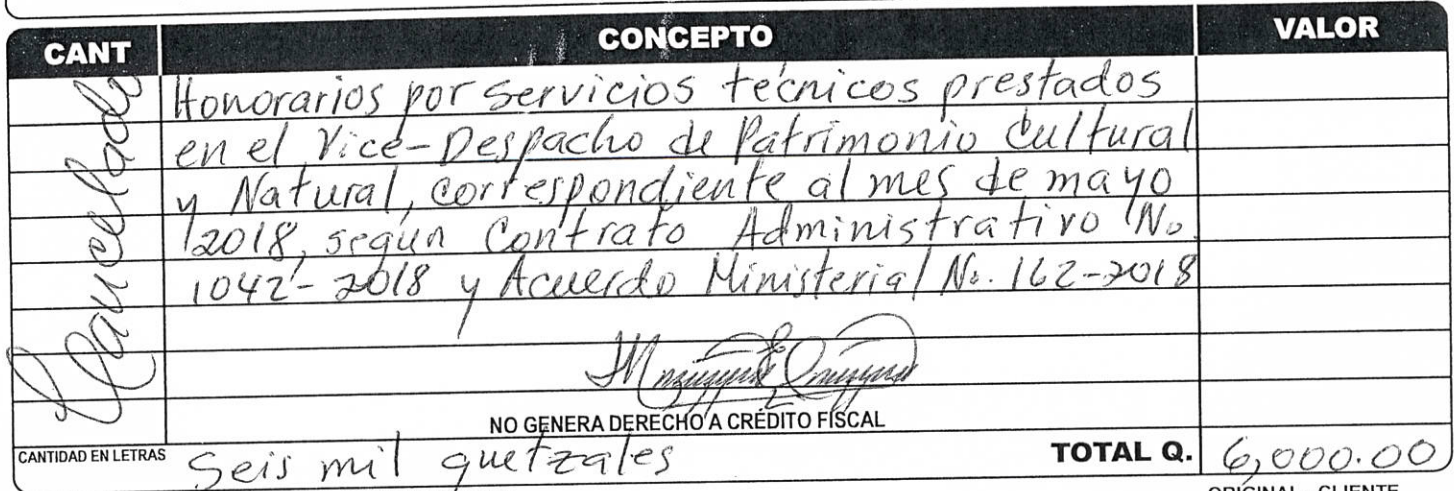 CANT CONCEPTO VALOR
Cancelado
Honorarios por servicios técnicos prestados
en el Vice-Despacho de Patrimonio Cultural
y Natural, correspondiente al mes de mayo
2018, según Contrato Administrativo No.
1042-2018 y Acuerdo Ministerial No. 162-2018
NO GENERA DERECHO A CRÉDITO FISCAL
CANTIDAD EN LETRAS Seis mil quetzales TOTAL Q. 6,000.00
ORIGINAL - CLIENTE